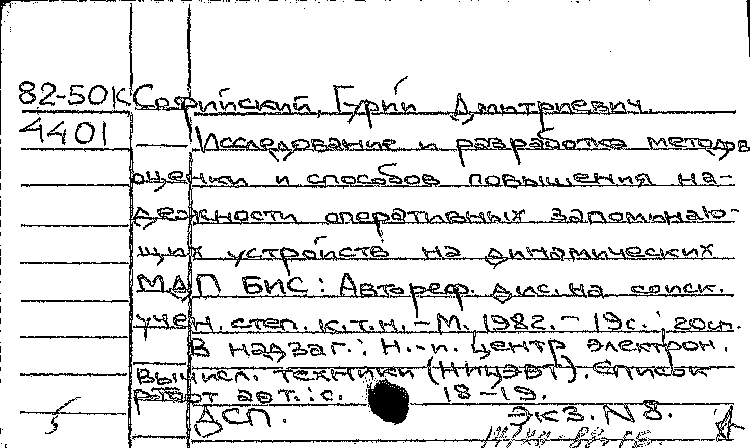 82-50К Софийский, Гурий Дмитриевич.
4401 Исследование и разработка методов
оценки и способов повышения на-
дежности оперативных запоминаю-
щих устройств на динамических
МДП БИС: Автореф. дис. на соиск.
учен. степ. к.т.н. - М. 1982. - 19с.; 20см.
В надзаг.: Н.-и. центр электрон.
вычисл. техники (НИЦЭВТ). Список
работ авт.: с. 18-19.
ДСП. Экз. N 8.
5